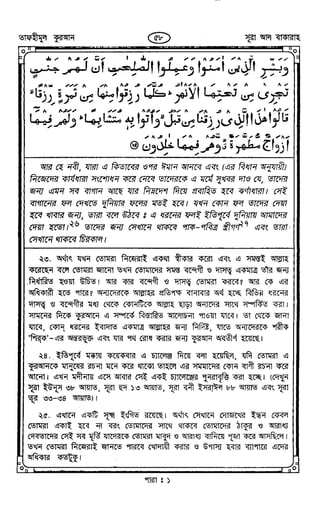 তাফহীমুল কুরআন
৫৮
সূরা আল বাকারাহ
وَبَشِّرِ الَّذِينَ آمَنُوا وَعَمِلُوا الصّٰلِحٰتِ أَنَّ لَهُمْ جَنّٰتٍ
تَجْرِي مِنْ تَحْتِهَا الْأَنْهٰرُ كُلَّمَا رُزِقُوا مِنْهَا مِنْ ثَمَرَةٍ رِزْقًا
قَالُوا هٰذَا الَّذِي رُزِقْنَا مِنْ قَبْلُ وَأُتُوا بِهِ مُتَشَابِهًا وَلَهُمْ فِيهَا
أَزْوَاجٌ مُطَهَّرَةٌ وَهُمْ فِيهَا خٰلِدُونَ
আর হে নবী, যারা এ কিতাবের ওপর ঈমান আনবে এবং (এর বিধান অনুযায়ী)
নিজেদের কার্যধারা সংশোধন করে নেবে তাদেরকে এ মর্মে সুখবর দাও যে, তাদের
জন্য এমন সব বাগান আছে যার নিম্নদেশ দিয়ে প্রবাহিত হবে ঝর্ণাধারা। সেই
বাগানের ফল দেখতে দুনিয়ার ফলের মতই হবে। যখন কোন ফল তাদের দেয়া
হবে খাবার জন্য, তারা বলে উঠবে ঃ এ ধরনের ফলই ইতিপূর্বে দুনিয়ায় আমাদের
দেয়া হতো।২৬ তাদের জন্য সেখানে থাকবে পাক-পবিত্র স্ত্রীগণ২৭ এবং তারা
সেখানে থাকবে চিরকাল।
২৩. অর্থাৎ যখন তোমরা নিজেরাই একথা স্বীকার করো এবং এ সমস্তই আল্লাহ
করেছেন বলে তোমরা জানো তখন তোমাদের সমস্ত বন্দেগী ও দাসত্ব একমাত্র তাঁর জন্য
নির্ধারিত হওয়া উচিত। আর কার বন্দেগী ও দাসত্ব তোমরা করবে? আর কে এর
অধিকারী হতে পারে? অন্যদেরকে আল্লাহর প্রতিপক্ষ বানাবার অর্থ হচ্ছে বিভিন্ন ধরনের
দাসত্ব ও বন্দেগীর মধ্য থেকে কোনটিকে আল্লাহ ছাড়া অন্যদের সাথে সম্পর্কিত করা।
সামনের দিকে কুরআনে এ সম্পর্কে বিস্তারিত আলোচনা পাওয়া যাবে। তা থেকে জানা
যাবে, কোন্ ধরনের ইবাদাত একমাত্র আল্লাহর জন্য নির্দিষ্ট, যাতে অন্যদেরকে শরীক
'শিরক'-এর অন্তরভুক্ত এবং যার পথ রোধ করার জন্য কুরআন অবতীর্ণ হয়েছে।
২৪. ইতিপূর্বে মক্কায় কয়েকবার এ চ্যালেঞ্জ দিয়ে বলা হয়েছিল, যদি তোমরা এ
কুরআনকে মানুষের রচনা মনে করে থাকো তাহলে এর সমমানের কোন বাণী রচনা করে
আনো। এখন মদীনায় এসে আবার সেই একই চ্যালেঞ্জের পুনরাবৃত্তি করা হচ্ছে। (দেখুন
সূরা ইউনুস ৩৮ আয়াত, সূরা হূদ ১৩ আয়াত, সূরা বনী ইসরাঈল ৮৮ আয়াত এবং সূরা
তূর ৩৩-৩৪ আয়াত)।
২৫. এখানে একটি সূক্ষ্ম ইংগিত রয়েছে। অর্থাৎ সেখানে দোজখের ইন্ধন কেবল
তোমরা একাই হবে না বরং তোমাদের সাথে থাকবে তোমাদের ঠাকুর ও আরাধ্য
দেবতাদের সেই সব মূর্তি যাদেরকে তোমরা মাবুদ ও আরাধ্য বানিয়ে পূজা করে আসছিলে।
তখন তোমরা নিজেরাই জানতে পারবে খোদায়ী করার ও উপাস্য হবার ব্যাপারে এদের
অধিকার কতটুকু।
পারা ঃ ১